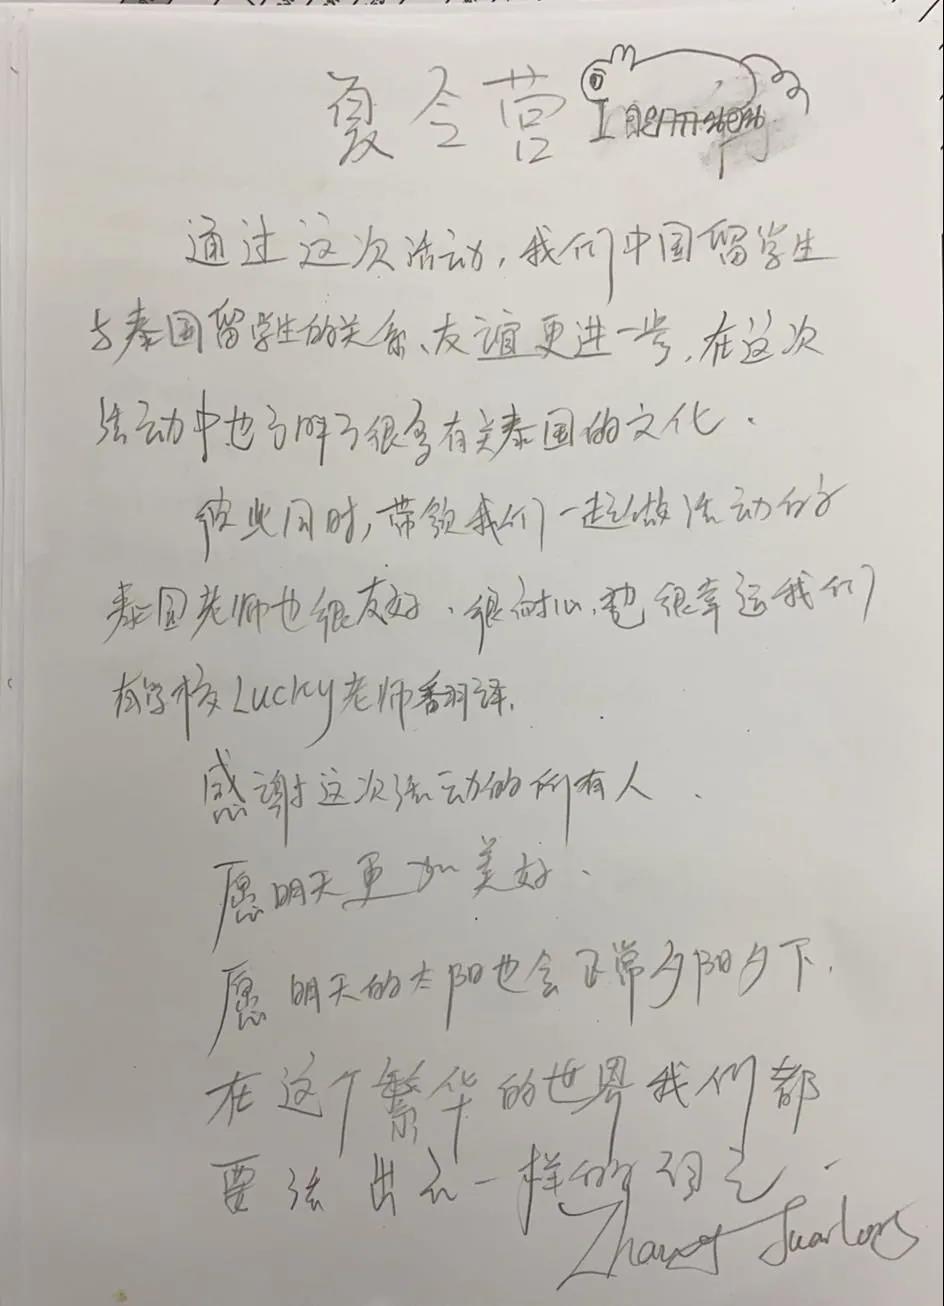 夏令营
通过这次活动，我们中国留学生
与泰国留学生的关系、友谊更进一步，在这次
活动中也了解了很多有关泰国的文化.
彼此同时，带领我们一起做活动的
泰国老师也很友好.很耐心，也很幸运我们
有学校Lucky老师翻译.
感谢这次活动的所有人.
愿明天更加美好.
愿明天的太阳也会正常夕阳夕下.
在这个繁华的世界我们都
要活出不一样的自己.
Zhang